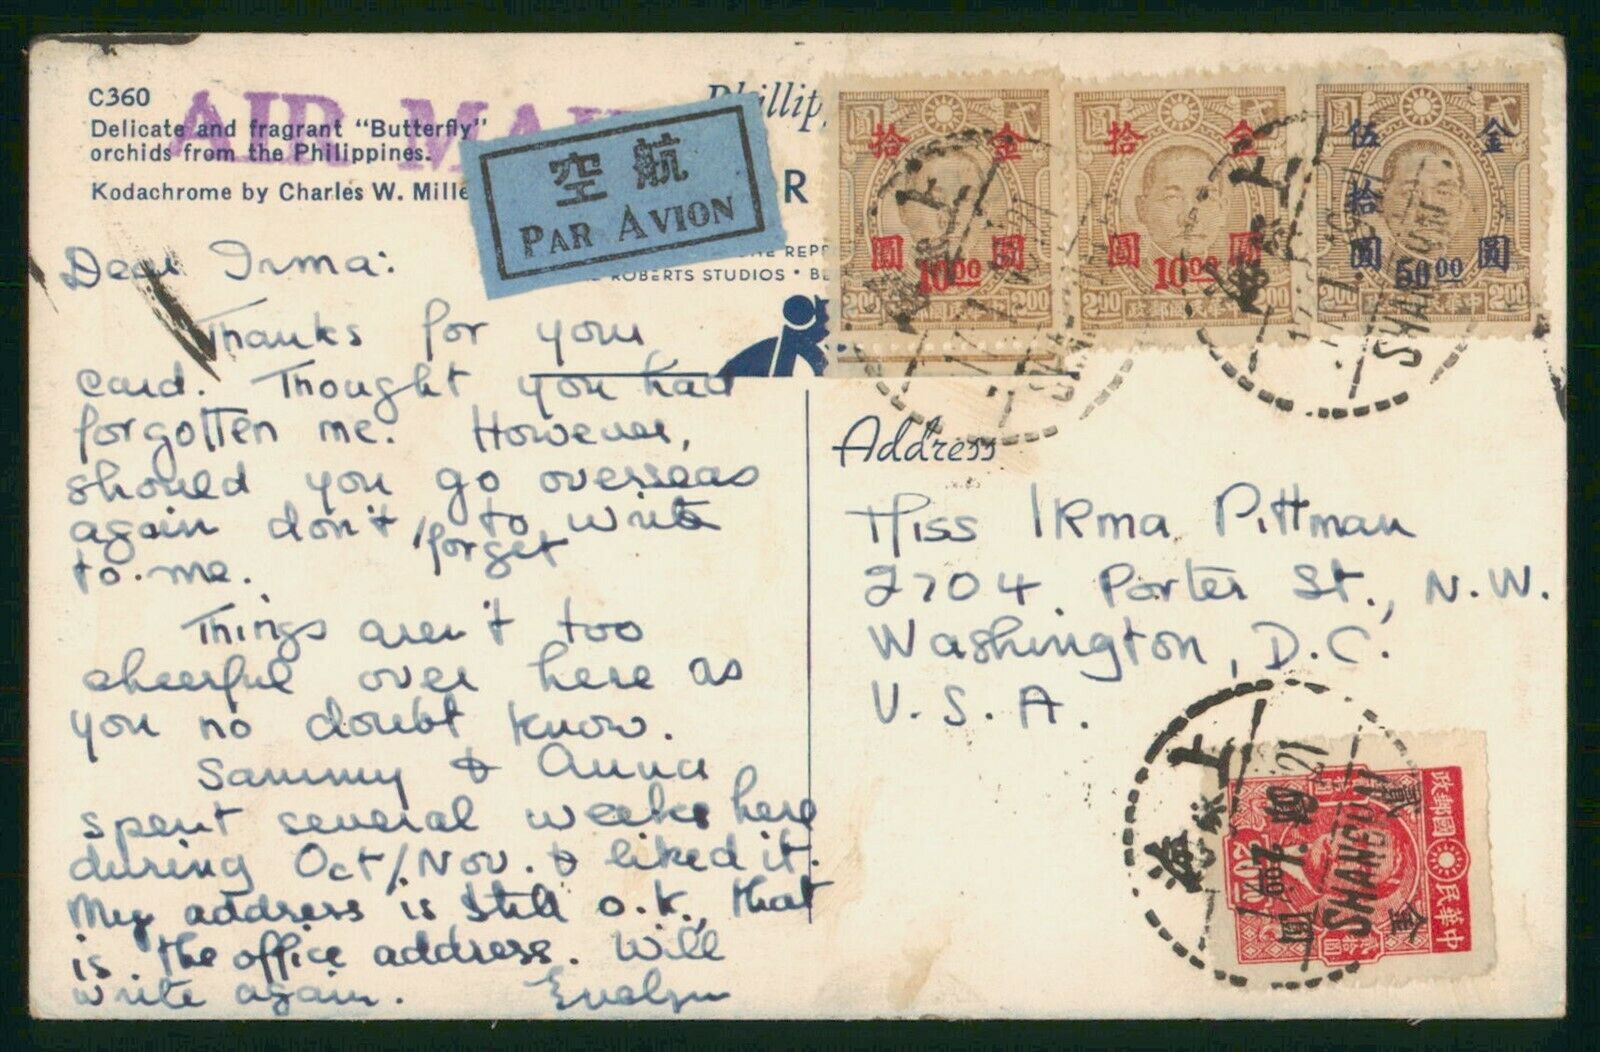 C360
Delicate and fragrant "Butterfly"
orchids from the Philippines.
Kodachrome by Charles W. Mille
AIR MAI
航空
PAR AVION
Phillip
R
REPR
ROBERTS STUDIOS • BE
金
拾
圓
圓
10.00
2.00
2.00
中華民國郵政
金
拾
圓
圓
10.00
2.00
2.00
中華民國郵政
金
伍拾
圓
圓
50.00
2.00
2.00
中華民國郵政
上海
SHANGHAI
上海
SHANGHAI
Dear Irma:
Thanks for your
card. Thought you had
forgotten me. However,
should you go overseas
again don't forget to write
to me.
Things aren't too
cheerful over here as
you no doubt know.
Sammy & Anna
spent several weeks here
during Oct/Nov. & liked it.
My address is still o.k., that
is the office address. Will
write again. Evelyn
Address
Miss Irma Pittman
2704 Porter St., N.W.
Washington, D.C.
U.S.A.
上海
SHANGHAI
中華民國郵政
金
圓
20